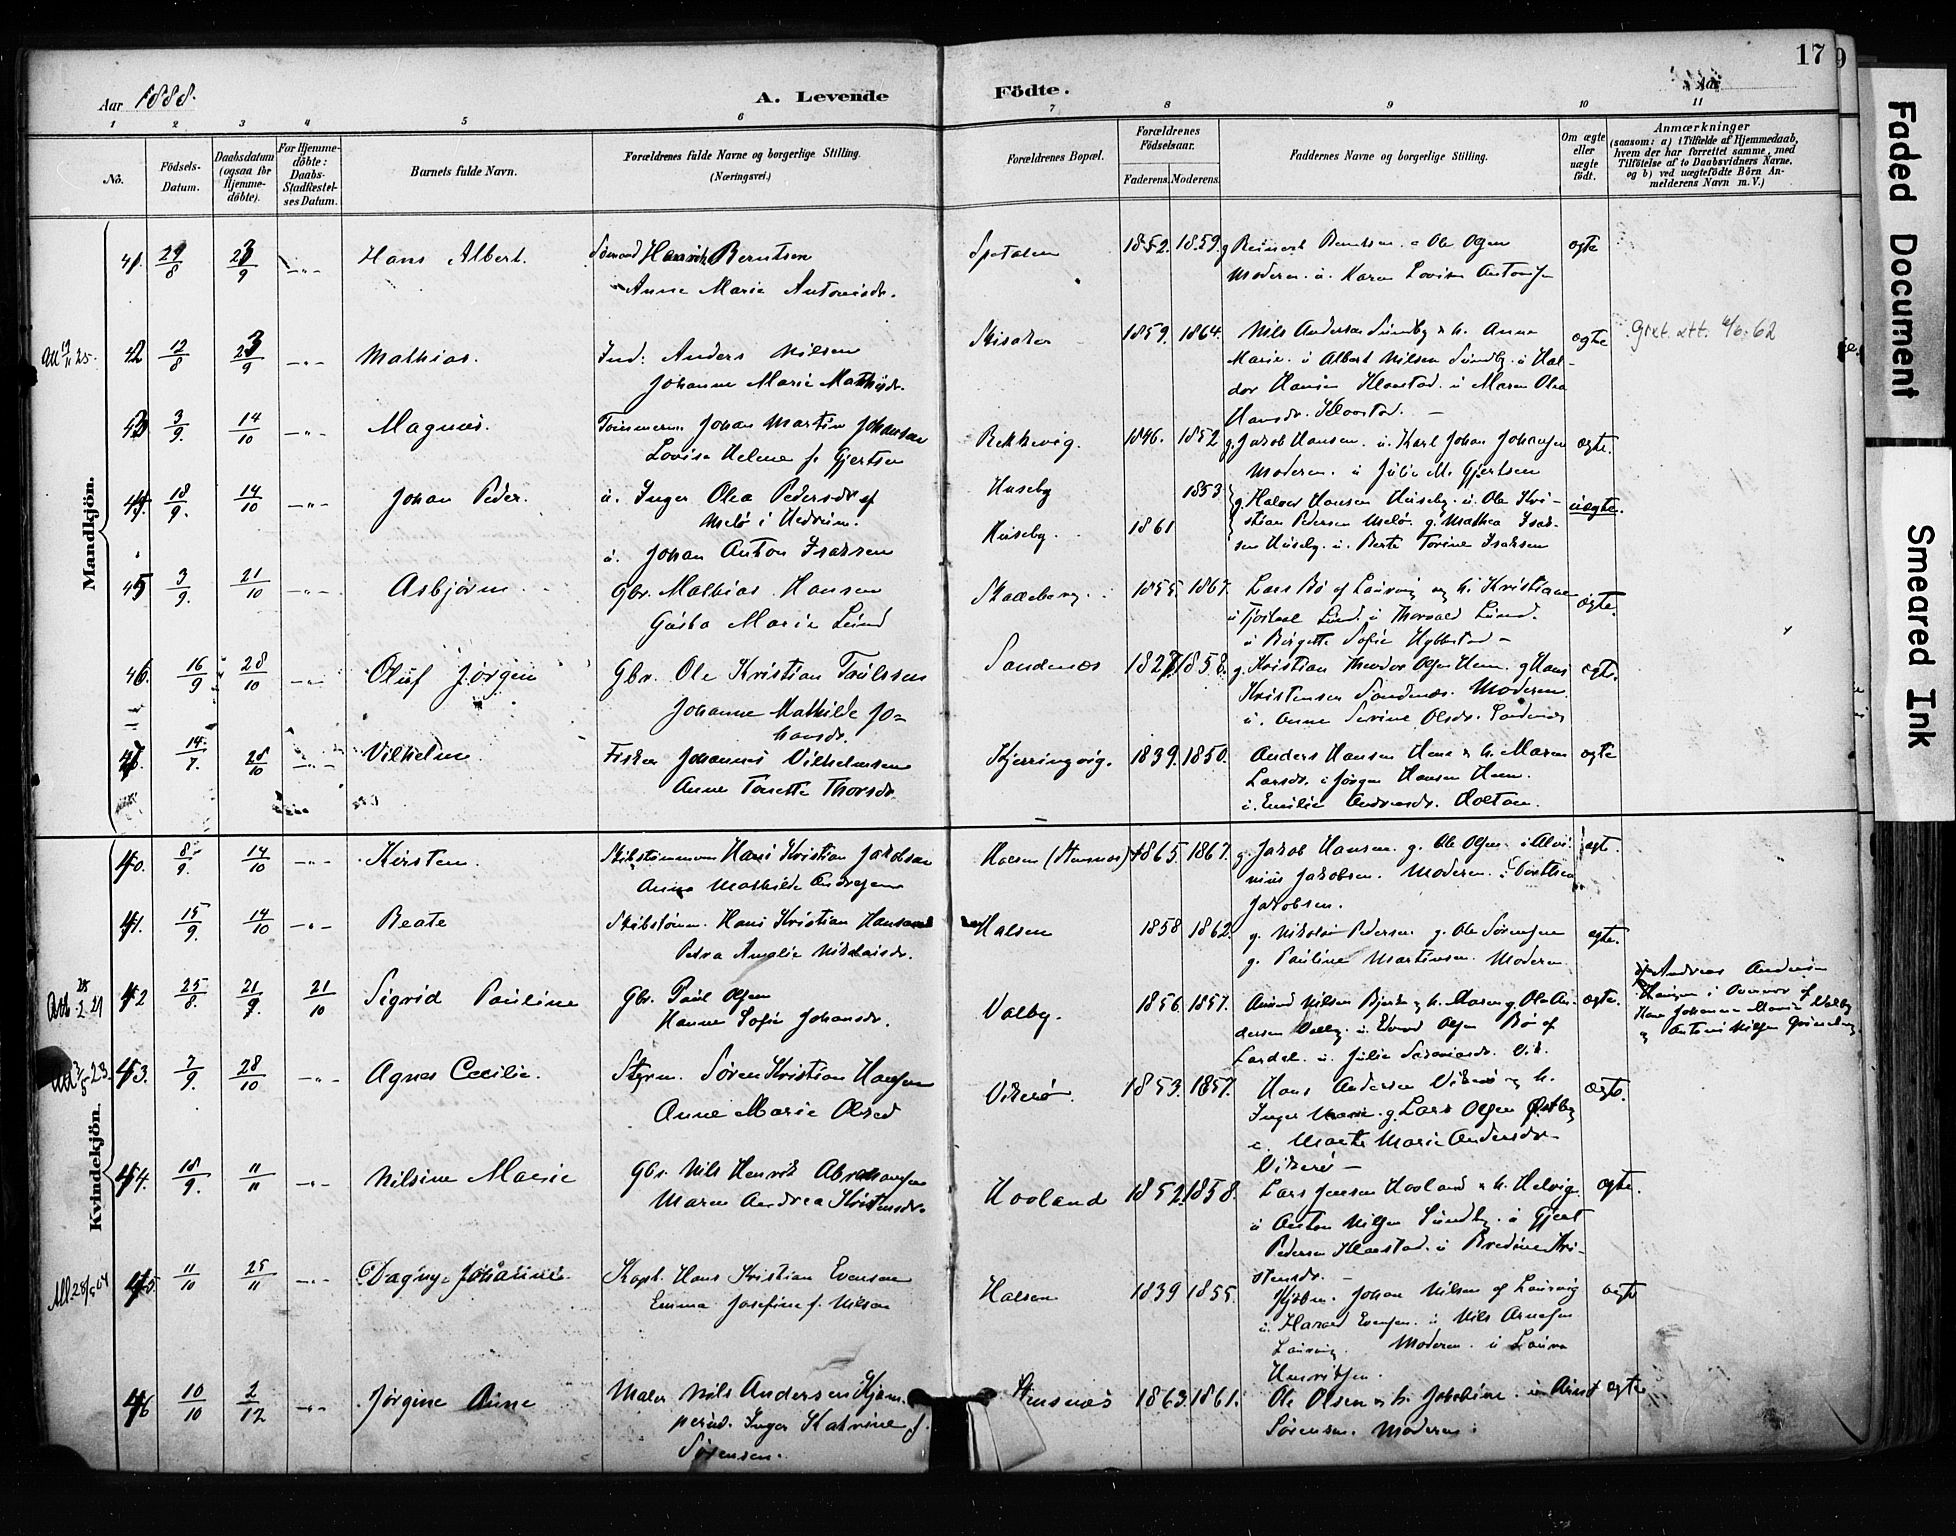 Aar 1888.
A. Levende
Födte.
Aar
17
1
2
3
4
5
6
7
8
9
10
11
No.
Födsels-
Datum.
Daabsdatum
(ogsaa for
Hjemme-
döbte).
For Hjemme-
döbte:
Daabs-
Stadfæstel-
ses Datum.
Barnets fulde Navn.
Forældrenes fulde Navne og borgerlige Stilling.
(Næringsvei.)
Forældrenes Bopæl.
Forældrenes
Födselsaar.
Faderens.
Moderens.
Faddernes Navne og borgerlige Stilling.
Om ægte
eller
uægte
födt.
Anmærkninger
(saasom: a) i Tilfælde af Hjemmedaab,
hvem der har forrettet samme, med
Tilföielse af to Daabsvidners Navne.
og b) ved uægtefödte Börn An-
melderens Navn m. V.)
Mandkjön.
41. 29/8 23/9 -"- Hans Albert. Henrik Berntsen
Anne Marie Antonisdr.
1852. 1859. Ole Olsen ægte
Moderen. u. Karen Lovise
42 12/8 23/9 -"- Mathias. Ind: Anders Nilsen
Johanne Marie Mathisdr.
Skisaker 1859. 1864. Nils Andersen Sundby & h. Anna
Marie. u Albert Nilsen Sundby. u Hal-
dor Hansen Klovstad. u Maren Olea
Hansdr. Klovstad. -
ægte Gixt. att. 4/6-62
43 3/9. 14/10 -"- Magnus. Tømmerm. Johan Martin Johansen
Lovise Helene f. Gjertsen
Rekkevig. 1846. 1852 g. Jakob Hansen. u. Karl Johan Johansen
Moderen. u Julie M. Gjertsen
ægte.
44. 18/9. 14/10 -"- Johan Peder. u. Inger Olea Pedersdr af
Melø i Hedrum.
u. Johan Anton Isaksen
Huseby 1853
Huseby. 1861
g. Halvor Hansen Huseby. u. Ole Kri-
stian Pedersen Melø. g. Mathea Isak-
sen Huseby. u. Berte Torine Isaksen
uægte.
45 3/9. 21/10 -"- Asbjørn. Gbr. Mathias Hansen
Gusta Marie Lund
Skaaeberg. 1855. 1867. Lars Bø af Laurvig og h. Kristiane
Lund. u Thorvald Lund.
u Birgitte Sofie
ægte.
46. 16/9 28/10 -"- Oluf Jørgen Gbr. Ole Kristian Trulssen
Johanne Mathilde Jo=
hansdr.
Sandenæs 1827. 1858. g. Kristian Theodor Olsen Hem. g Hans
Kristensen Sandenæs. Moderen.
u. Anne Serine Olsdr. Sandenæs
ægte.
47. 14./7. 28/10 -"- Vilhelm Fisker Johannes Vilhelmsen
Anne Tonette Thorsdr.
Kjerringvig. 1839. 1850. Anders Hansen Hem & h. Maren
Larsdr. u Jørgen Hansen Hem.
u. Emilie Andreasdr. Holtan.
ægte
Kvindekjön.
40. 8/9. 14/10 -"- Kirsten. Skibstømmerm Hans Kristian Jakobsen
Anne Mathilde Andersen
Halsen (Stensnæs) 1865. 1867. g. Jakob Hansen. g. Ole Olsen. u
Jakobsen. Moderen.
Jakobsen.
ægt.
41. 15/9. 14/10 -"- Beate Skibstømm. Hans Kristian Hansen
Petra Amalie Nikolaisdr.
Halsen 1858 1862. g. Nikolai Pedersen. g. Ole Sørensen
g. Pauline Martinsen. Moderen
ægte.
42 25/8. 21/9. 21/10 Sigrid Pauline Gbr. Paul Olsen
Hanne Sofie Johansdr.
Valby. 1856. 1857. Amund Nilsen Bjerke og h. Maren g Ole An-
dersen Valby. u. Edvard Olsen Bø af
Lardal. u. Julie
ægte.
Andreas Andersen
43. 7/9. 28/10 -"- Agnes Cecilie. Styrm. Søren Kristian Hansen
Anne Marie Olsed
Vikerø. 1853. 1857. Hans Andersen Vikerø og h.
Inger Marie. g. Lars Olsen Østby
u. Marte Marie Andersdr.
Vikerø -
ægte.
44. 18/9. 11/11 -"- Nilsine Marie Gbr. Nils Henrik Abrahamsen
Maren Andrea Kristensdr.
Hovland 1852. 1858. Lars Jensen Hovland & h. Helvig.
u Anton Nilsen Sundby. u Gjert
Pedersen Klovstad. u Bredine Kri-
stensdr. -
ægte.
45. 11/10 25/11 -"- Dagny Johanne. Kapt. Hans Kristian Evensen
Emma Josefine f. Nilsen
Halsen 1839 1855. Kjøbm. Johan Nilsen af Laurvig
u. Harald Evensen. u Nils Arnesen
Laurvig. Moderen. u Laura
Henriksen.
ægte
46 10/10 2/12 -"- Jørgine Anne Maler Nils Andersen
Inger Katrine f.
Sørensen.
Stensnæs 1863. 1861. Ole Olsen & h. Jakobine. u Arnt
Sørensen. Moderen.
ægte
Faded Document
Smeared Ink